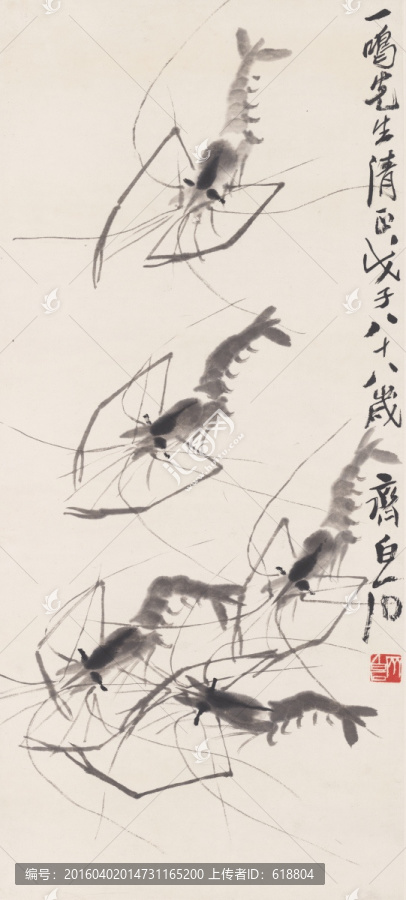 一鳴先生清正戊子八十八歲 齊白石
编号：20160402014731165200 上传者ID：618804